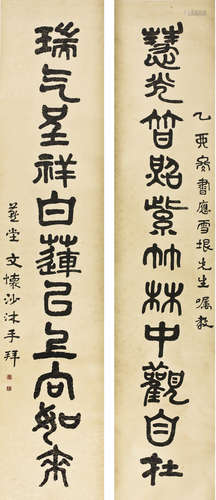 乙酉冬書應雪垠先生囑教
慧光普照紫竹林中觀自在
瑞气呈祥白蓮台上向如来
燕堂文懷沙沐手拜